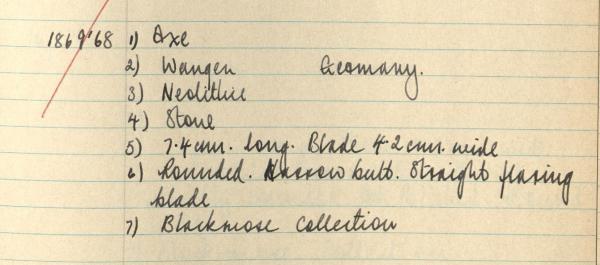 1869'68 1) Axe
2) Wangen Germany.
3) Neolithic
4) Stone
5) 7.4 cm. long. Blade 4.2 cm. wide
6) Rounded. Narrow butt. Straight flaring
blade
7) Blackmore Collection